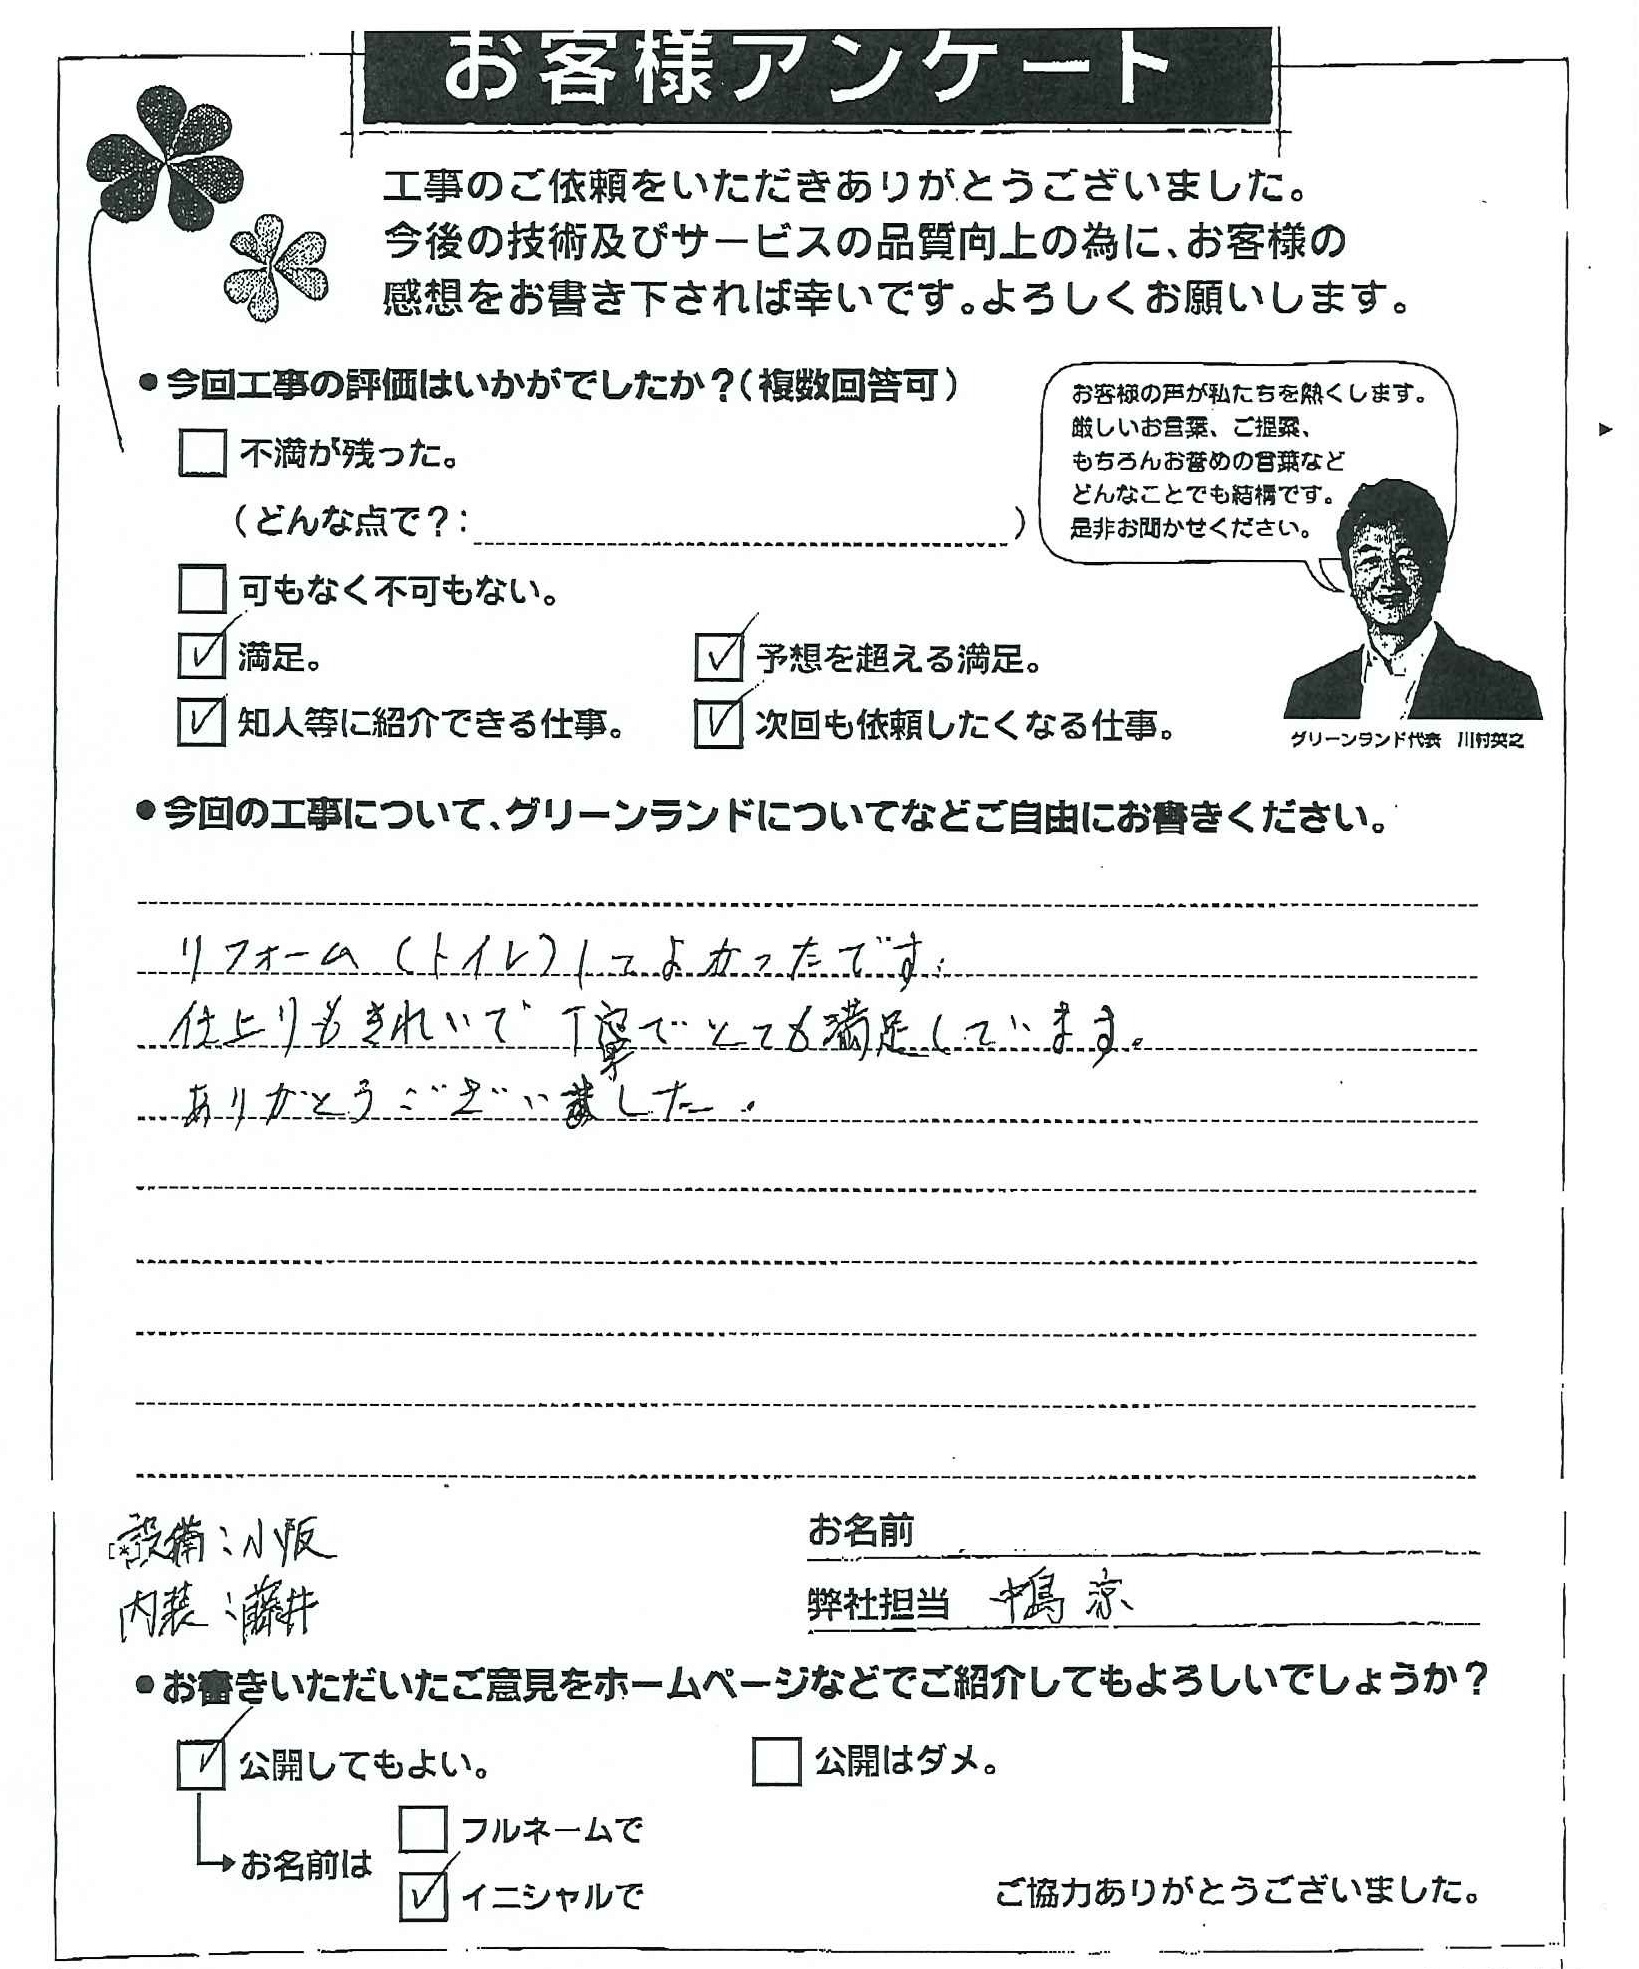 お客様アンケート
工事のご依頼をいただきありがとうございました。
今後の技術及びサービスの品質向上の為に、お客様の
感想をお書き下されば幸いです。よろしくお願いします。
●今回工事の評価はいかがでしたか？(複数回答可)
お客様の声が私たちを熱くします。
厳しいお言葉、ご提案、
もちろんお誉めの言葉など
どんなことでも結構です。
是非お聞かせください。
不満が残った。
(どんな点で？: )
可もなく不可もない。
満足。 予想を超える満足。
知人等に紹介できる仕事。 次回も依頼したくなる仕事。
グリーンランド代表 川村英之
●今回の工事について、グリーンランドについてなどご自由にお書きください。
リフォーム(トイレ)してよかったです。
仕上りもきれいで丁寧でとても満足しています。
ありがとうございました。
設備:小阪
内装:藤井
お名前
弊社担当 中島 涼
●お書きいただいたご意見をホームページなどでご紹介してもよろしいでしょうか？
公開してもよい。 公開はダメ。
お名前は
フルネームで
イニシャルで
ご協力ありがとうございました。